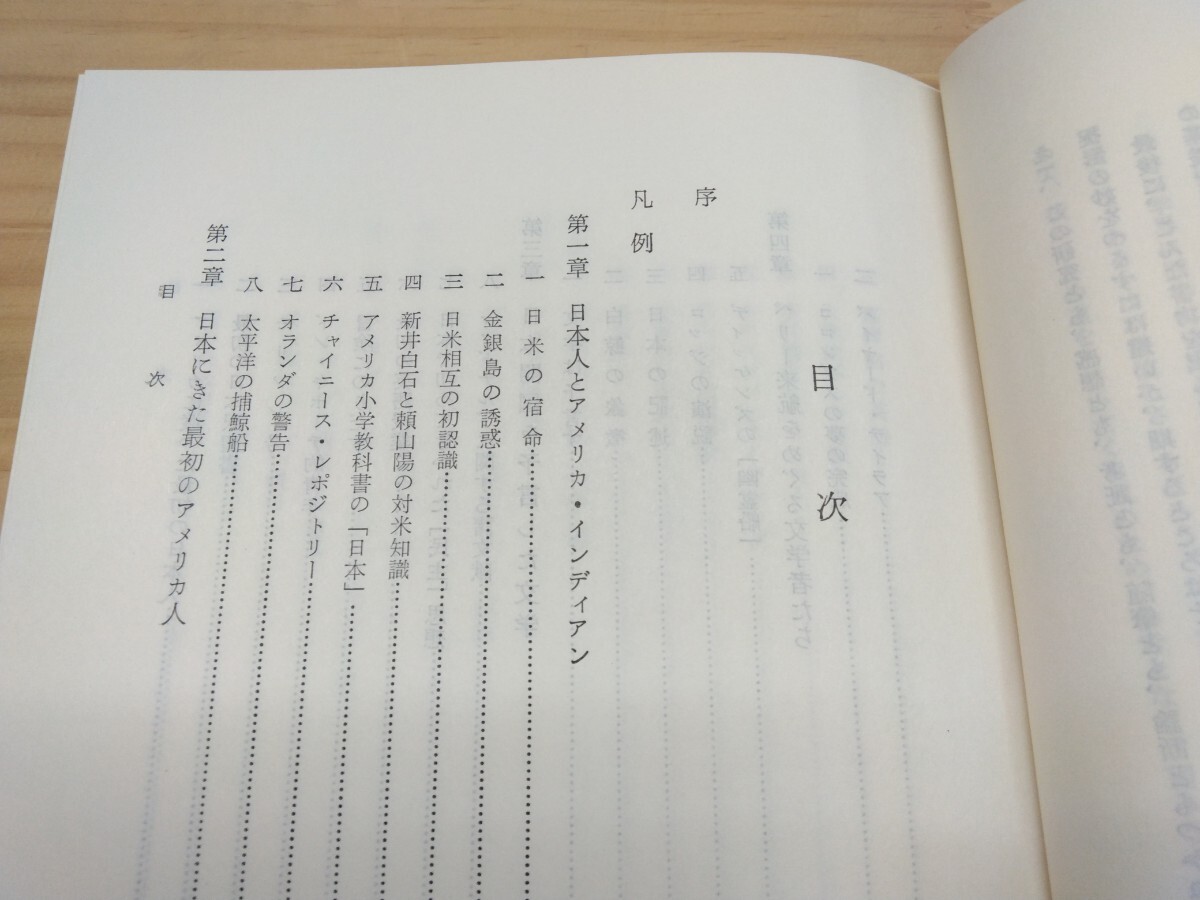 目次
序
凡例
第一章 日本人とアメリカ・インディアン
一 日米の宿命
二 金銀島の誘惑
三 日米相互の初認識
四 新井白石と頼山陽の対米知識
五 アメリカ小学教科書の「日本」
六 チャイニース・レポジトリー
七 オランダの警告
八 太平洋の捕鯨船
第二章 日本にきた最初のアメリカ人
目次